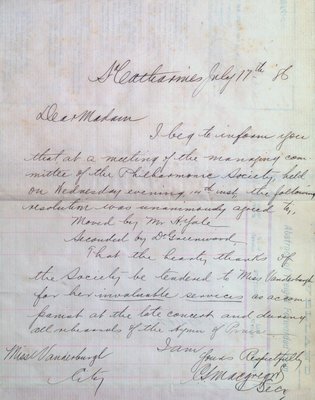 St. Catharines July 17th 86
Dear Madam
I beg to inform you
that at a meeting of the managing com
mittee of the Philharmonic Society, held
on Wednesday evening inst, the following
resolution was unanimously agreed to,
Moved by Mr
Seconded by Dr Greenwood,
That the hearty thanks of
the Society be tendered to Miss Vanderburgh
for her invaluable services as accom
panist at the late concert and during
all rehearsals of the Hymn of Praise.
I am
Yours Respectfully
Macgregor
Secy
Miss Vanderburgh
City